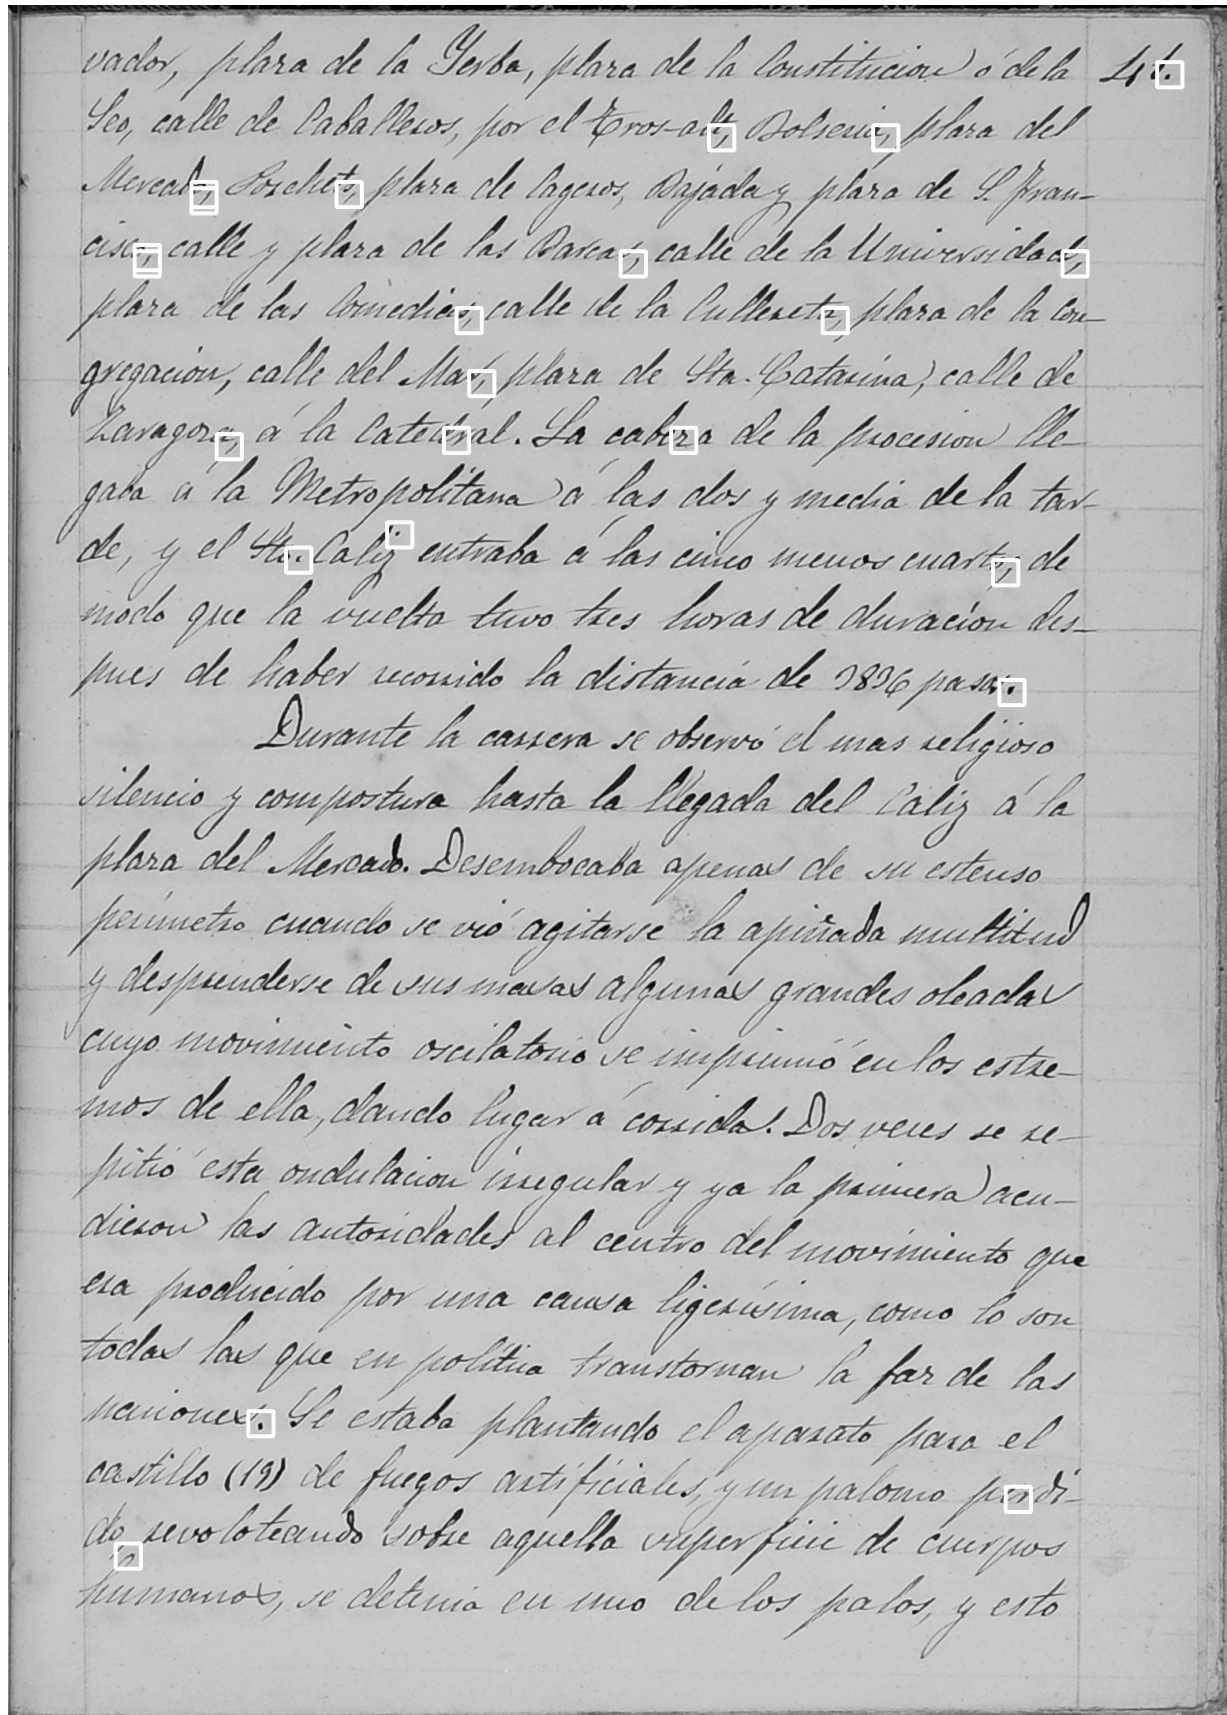 vador, plaza de la Yerba, plaza de la Constitucion ó de la 41.
Seo, calle de Caballeros, por el Tros-alt, Bolseria, plaza del
Mercado, Porchets, plaza de Cageros, Bajada y plaza de S. Fran-
cisco, calle y plaza de las Barcas, calle de la Universidad,
plaza de las Comedias, calle de la Cullereta, plaza de la Con-
gregacion, calle del Mar, plaza de Sta. Catarina, calle de
Zaragoza, á la Catedral. La cabeza de la procesion lle-
gaba á la Metropolitana á las dos y media de la tar-
de, y el Sto. Caliz entraba á las cinco menos cuarto, de
modo que la vuelta tuvo tres horas de duración des-
pues de haber recorrido la distancia de 3836 pasos.
Durante la carrera se observó el mas religioso
silencio y compostura hasta la llegada del Caliz á la
plaza del Mercado. Desembocaba apenas de su estenso
perímetro cuando se vió agitarse la apiñada multitud
y desprenderse de sus masas algunas grandes oleadas
cuyo movimiento oscilatorio se imprimió en los estre-
mos de ella, dando lugar á corridas. Dos veces se re-
pitió esta ondulacion irregular y ya la primera acu-
dieron las autoridades al centro del movimiento que
era producido por una causa ligerísima, como lo son
todas las que en política transtornan la faz de las
naciones. Se estaba plantando el aparato para el
castillo (19) de fuegos artificiales, y un palomo perdi-
do, revoloteando sobre aquella superficie de cuerpos
humanos, se detenia en uno de los palos, y esto